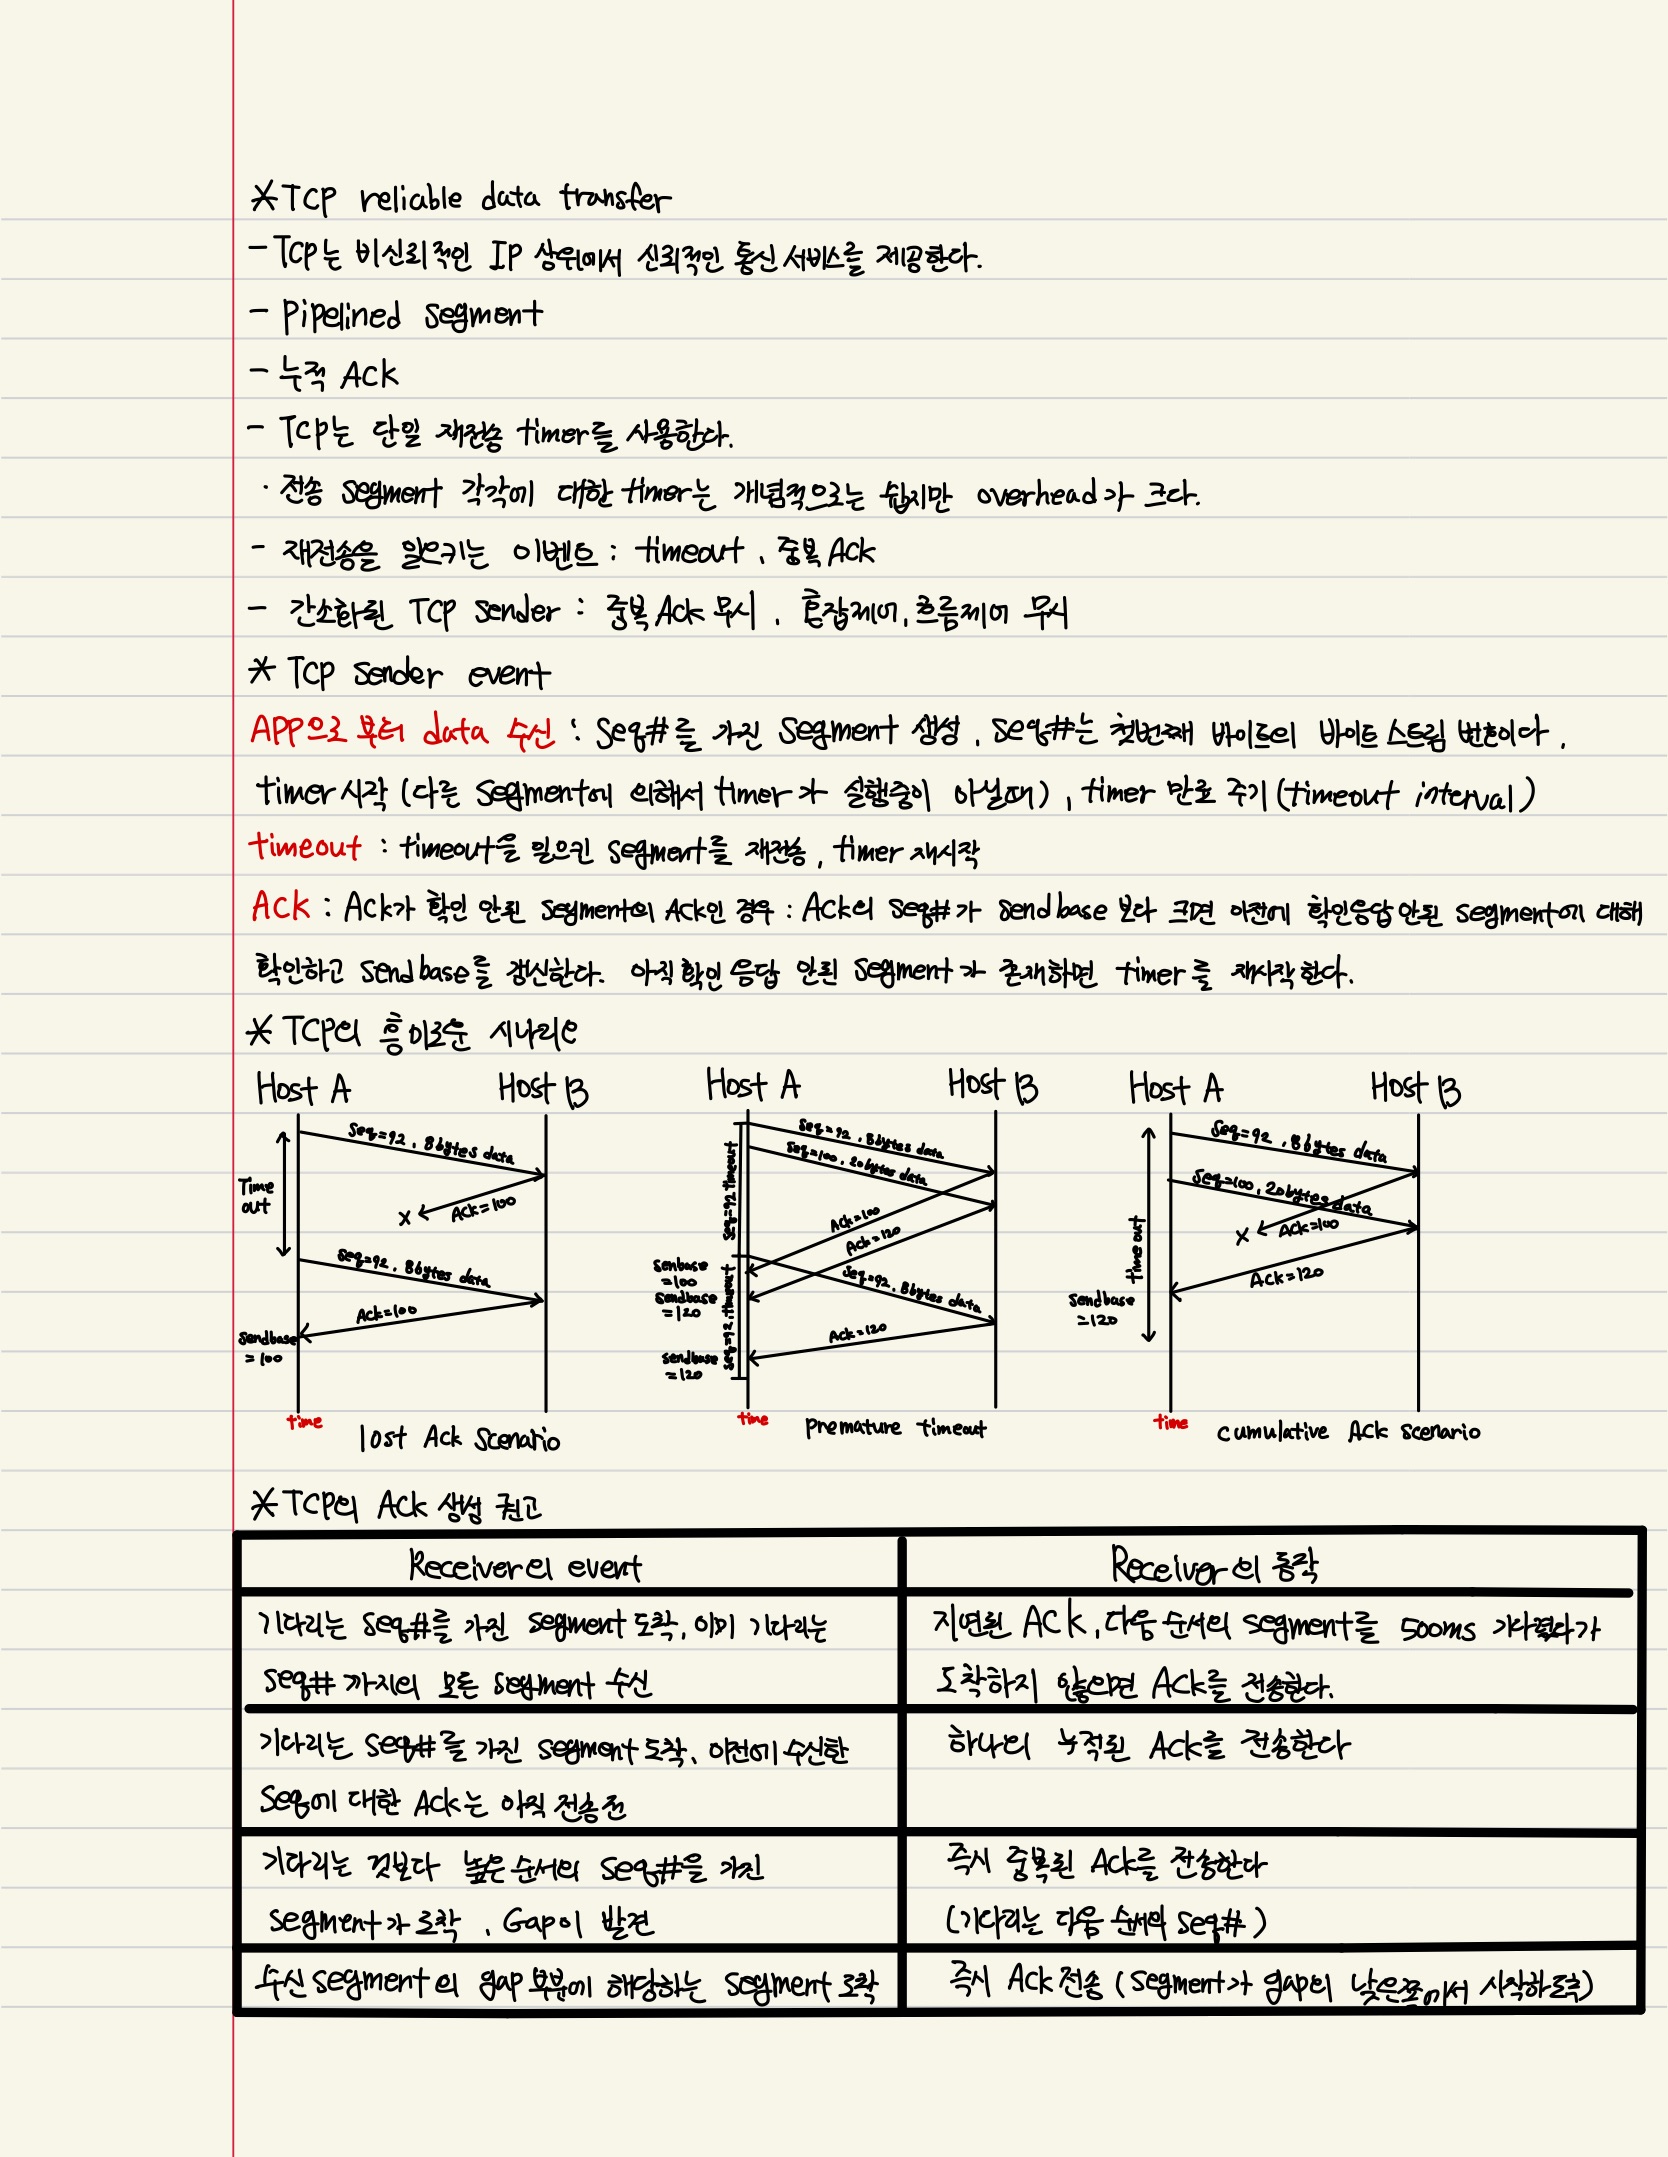 *TCP reliable data transfer
- TCP는 비신뢰적인 IP 상위에서 신뢰적인 통신 서비스를 제공한다.
- Pipelined segment
- 누적 Ack
- TCP는 단일 재전송 timer를 사용한다.
· 전송 segment 각각에 대한 timer는 개념적으로는 쉽지만 overhead가 크다.
- 재전송을 일으키는 이벤트 : timeout, 중복 Ack
- 간소화된 TCP sender : 중복 Ack 무시, 혼잡제어, 흐름제어 무시
* TCP sender event
APP으로 부터 data 수신 : Seq#를 가진 segment 생성, seq#는 첫번째 바이트의 바이트 스트림 번호이다,
timer 시작 (다른 segment에 의해서 timer가 실행중이 아닐때), timer 만료 주기 (timeout interval)
timeout : timeout을 일으킨 segment를 재전송, timer 재시작
Ack : Ack가 확인 안된 segment의 Ack인 경우 : Ack의 seq#가 sendbase 보다 크면 이전에 확인응답 안된 segment에 대해
확인하고 sendbase를 갱신한다. 아직 확인 응답 안된 segment가 존재하면 timer를 재시작한다.
* TCP의 흥미로운 시나리오
Host A Host B
Seq=92, 8bytes data
Time
out
X Ack=100
Seq=92, 8bytes data
Ack=100
Sendbase
=100
time
lost Ack Scenario
Host A Host B
Seq=92, 8bytes data
Seq=100, 20bytes data
Seq=92 timeout
Ack=100
Ack=120
Senbase
=100
Sendbase
=120
Seq=92, 8bytes data
Seq=92, timeout
Ack=120
Sendbase
=120
time
Premature timeout
Host A Host B
Seq=92, 8bytes data
Seq=100, 20bytes data
time out
X Ack=100
Ack=120
Sendbase
=120
time
cumulative Ack scenario
*TCP의 Ack 생성 권고
Receiver의 event Receiver의 동작
기다리는 seq#를 가진 segment 도착, 이미 기다리는
seq# 까지의 모든 segment 수신
지연된 ACK, 다음 순서의 segment를 500ms 기다렸다가
도착하지 않으면 Ack를 전송한다.
기다리는 seq#를 가진 segment 도착, 이전에 수신한
Seq에 대한 Ack는 아직 전송전
하나의 누적된 Ack를 전송한다
기다리는 것보다 높은 순서의 seq#을 가진
segment가 도착, Gap이 발견
즉시 중복된 Ack를 전송한다
(기다리는 다음 순서의 seq#)
수신 segment의 gap 부분에 해당하는 segment 도착
즉시 Ack 전송 (segment가 gap의 낮은쪽에서 시작하도록)